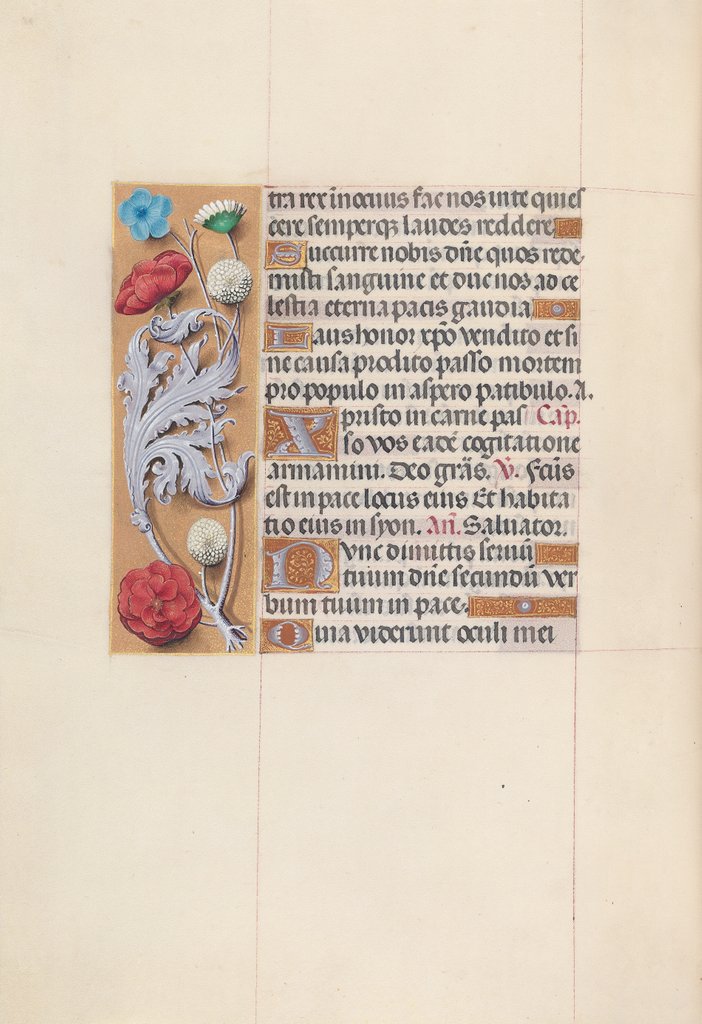 tra rex inocuus fac nos in te quies
cere semperq; laudes reddere
Succurre nobis dñe quos rede
misti sanguine et duc nos ad ce
lestia eterna pacis gaudia
Laus honor xpo vendito et si
ne causa prodito passo mortem
pro populo in aspero patibulo. A.
Xpristo in carne pas Cap.
so vos eadē cogitatione
armamini. Deo gr̃as. V̄. Fctũs
est in pace locus eius Et habita
tio eius in syon. Añ. Saluator.
Nvnc dimittis seruũ
tuum dñe secundũ ver
bum tuum in pace.
Quia viderunt oculi mei